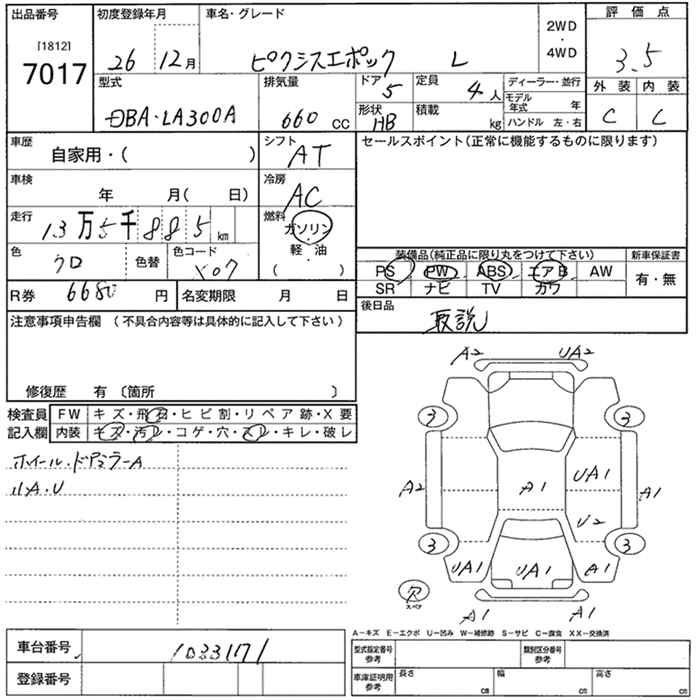 出品番号
[1812]
7017
初度登録年月
26 12月
車名・グレード
ピクシスエポック L
2WD
・
4WD
評価点
3.5
型式
DBA・LA300A
排気量
660 CC
ドア 5
定員 4人
形状 HB
積載 kg
ディーラー・並行
モデル年式 年
ハンドル 左・右
外装 内装
C C
車歴
自家用・( )
シフト
AT
セールスポイント(正常に機能するものに限ります)
車検
年 月( 日)
冷房
AC
走行
13万5千885km
燃料
ガソリン
・
軽・油
( )
色
クロ
色替
色コード
X07
装備品(純正品に限り丸をつけて下さい)
PS PW ABS エアB AW
SR ナビ TV カワ
新車保証書
有・無
R券 6680円
名変期限 月 日
後日品
取説
注意事項申告欄(不具合内容等は具体的に記入して下さい)
修復歴 有〔箇所 〕
検査員
記入欄
FW キズ・飛石・ヒビ割・リペア跡・X要
内装 キズ・汚レ・コゲ・穴・スレ・キレ・破レ
ホイール・ドアミラーA
A2 UA2
3 3
A2 A1 UA1 A1
U2
3 3
UA1 UA1 A1
A1 A1
スペア
A−キズ E−エクボ U−凹み W−補修跡 S−サビ C−腐食 XX−交換済
車台番号
1033171
登録番号
型式指定番号
参考
類別区分番号
参考
車庫証明用
参考
長さ cm
幅 cm
高さ cm